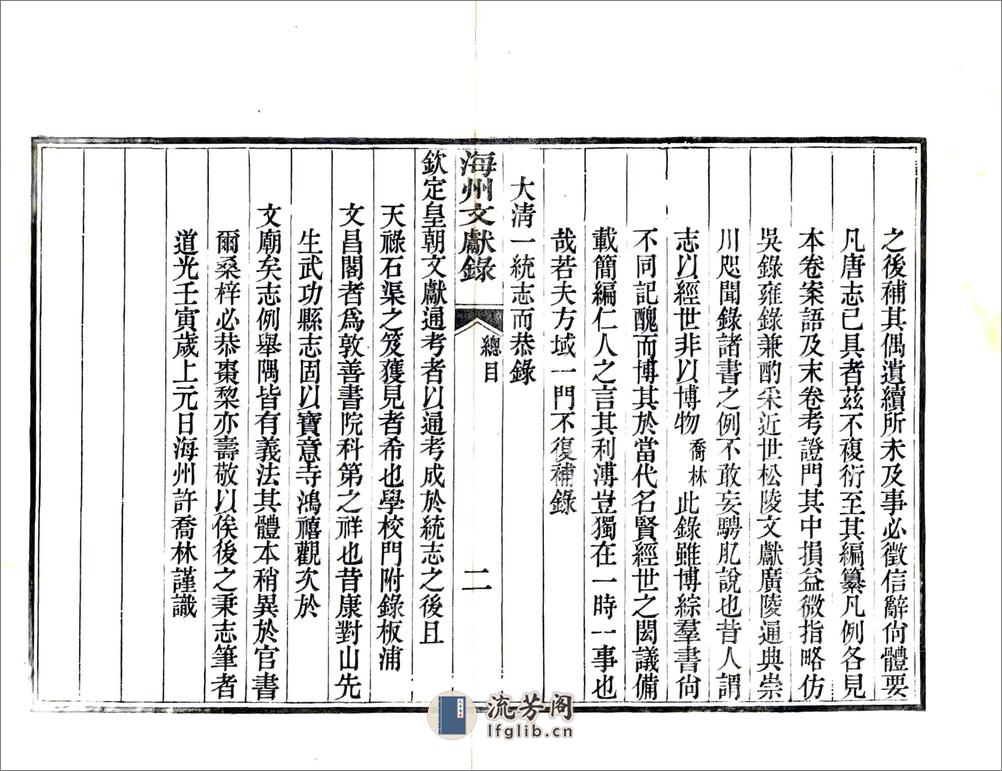 之後補其偶遺續所未及事必徵信辭尙體要
凡唐志已具者茲不複衍至其編纂凡例各見
本卷案語及末卷考證門其中損益微指略仿
吳錄雍錄兼酌采近世松陵文獻廣陵通典崇
川咫聞錄諸書之例不敢妄騁肊說也昔人謂
志以經世非以博物喬林此錄雖博綜羣書尙
不同記醜而博其於當代名賢經世之閎議備
載簡編仁人之言其利溥豈獨在一時一事也
哉若夫方域一門不復補錄
大清一統志而恭錄
海州文獻錄
總目
二
欽定皇朝文獻通考者以通考成於統志之後且
天祿石渠之笈獲見者希也學校門附錄板浦
文昌閣者爲敦善書院科第之祥也昔康對山先
生武功縣志固以寶意寺鴻禧觀次於
文廟矣志例舉隅皆有義法其體本稍異於官書
爾桑梓必恭棗棃亦壽敬以俟後之秉志筆者
道光壬寅歲上元日海州許喬林謹識
流芳阁
lfglib.cn